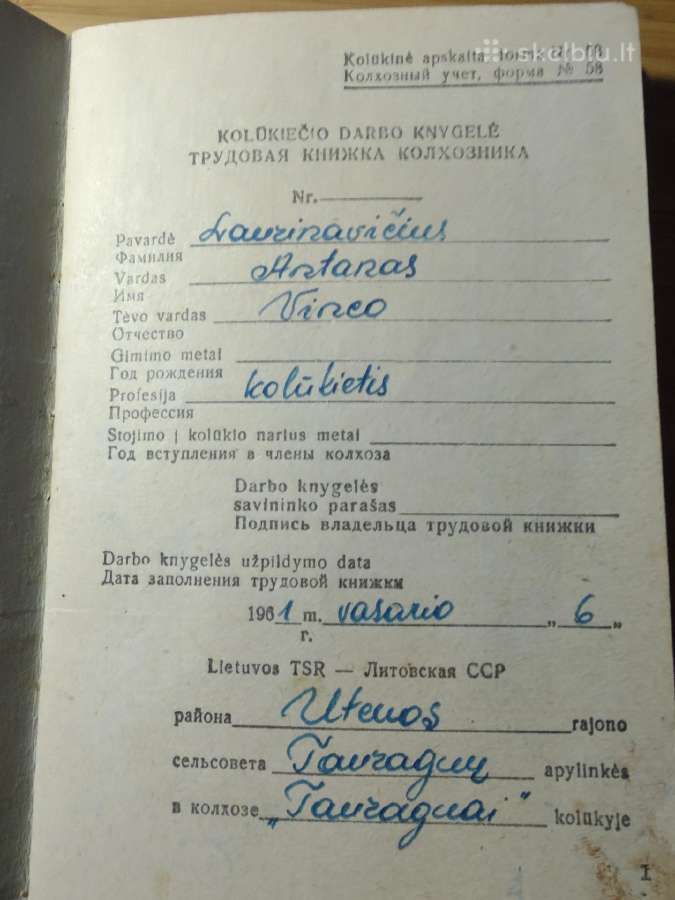 skelbiu.lt
Kolūkinė apskaita forma № 58
Колхозный учет, форма № 58
KOLŪKIEČIO DARBO KNYGELĖ
ТРУДОВАЯ КНИЖКА КОЛХОЗНИКА
Nr.
Pavardė Laurinavičius
Фамилия
Vardas Antanas
Имя
Tėvo vardas Vinco
Отчество
Gimimo metai
Год рождения
Profesija kolūkietis
Профессия
Stojimo į kolūkio narius metai
Год вступления в члены колхоза
Darbo knygelės
savininko parašas
Подпись владельца трудовой книжки
Darbo knygelės užpildymo data
Дата заполнения трудовой книжки
1961 m. vasario „ 6 „
г.
Lietuvos TSR — Литовская ССР
района Utenos rajono
сельсовета Tauragnų apylinkės
в колхозе „Tauragnai" kolūkyje
I